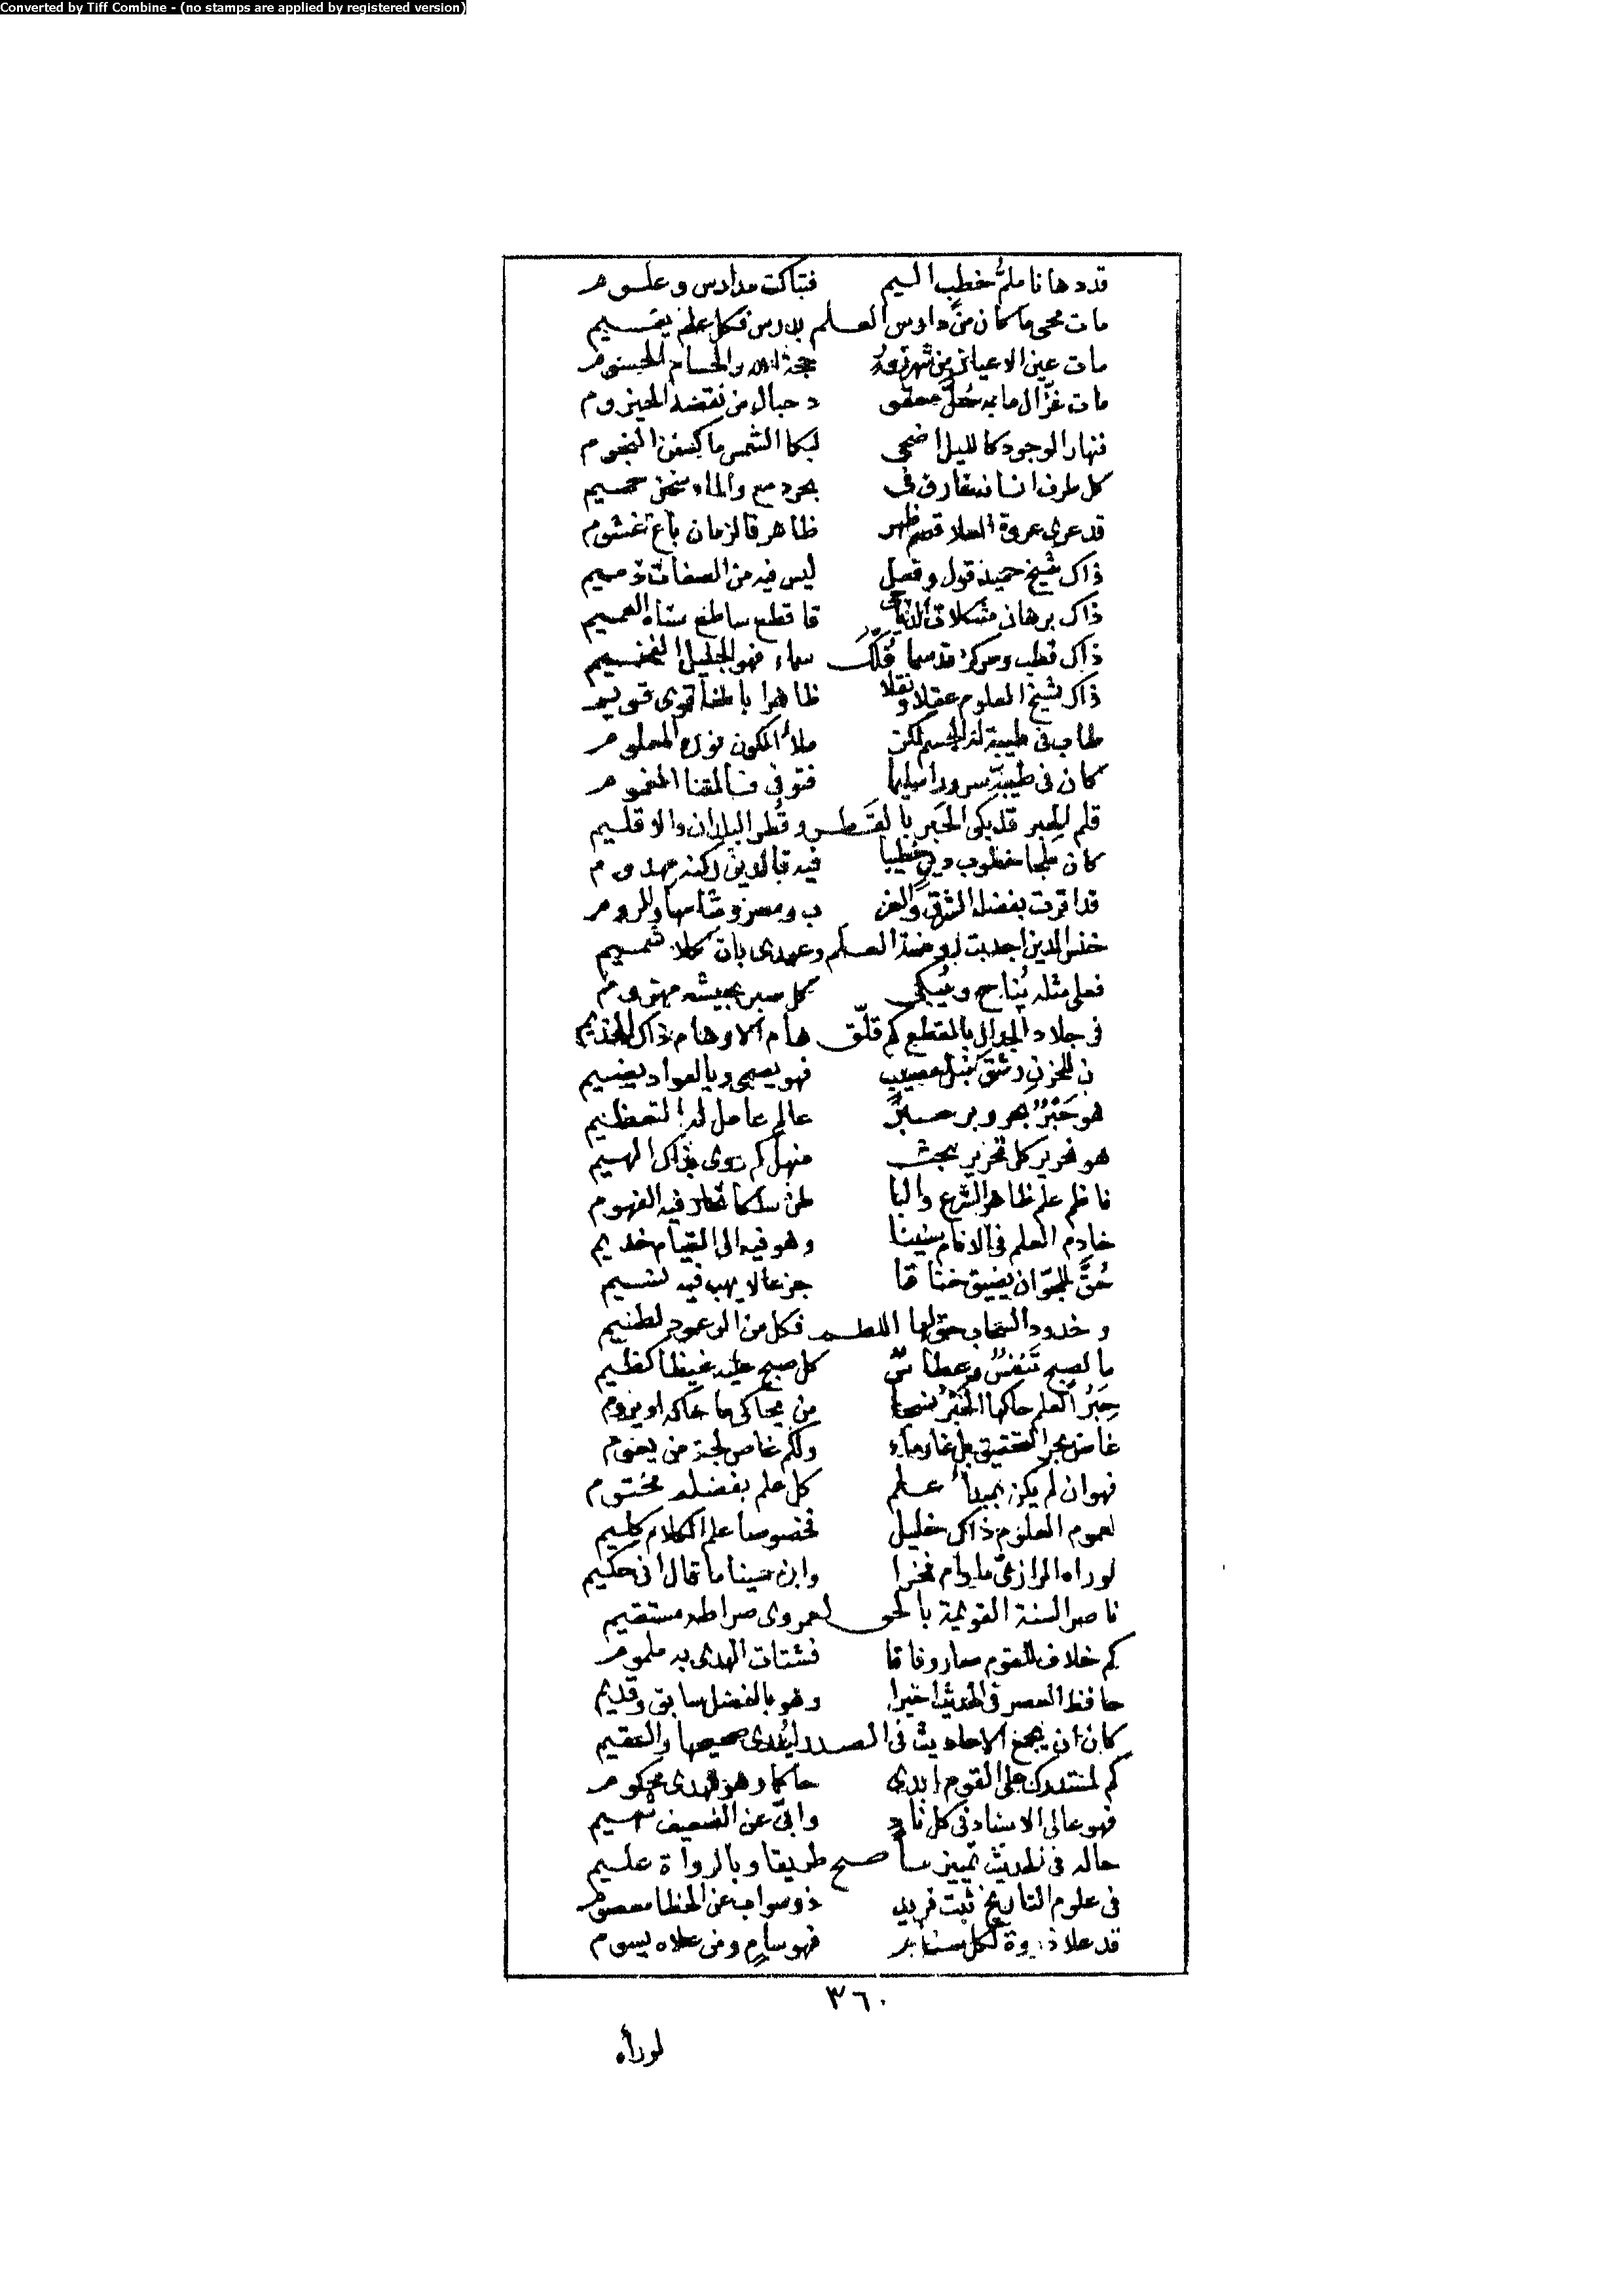 Converted by Tiff Combine - (no stamps are applied by registered version)
قد دهانا ملمُّ خطب اليم فتباكت مدارس وعلوم
مات محي ما كان من دارس العلم بدرس فكل علم يتيم
مات عين الاعيان من شهرزور حجة الله والحسام الحسوم
مات غزّال ما به حُلّ معقود حبال من نقضه الحيزوم
فنهار الوجود كالليل اضحى لبكا الشمس ما كسفن النجوم
كل طرف انسانه غارق في بحر دمع والماء سخن حميم
قد عرى عروة العلا فصم ظهر ظاهر فالزمان باغ غشوم
ذاك شيخ حميد قول وفعل ليس فيه من الصفات ذميم
ذاك برهان مشكلات قاطع ساطع سناه العميم
ذاك قطب ومركز قد سما فلك سماء فهو الجليل الفخيم
ذاك شيخ العلوم عقلا ونقلا ظاهرا باطنا قوى قويم
طاب في طيبة له الجسم لكن ملأ الكون نوره المعلوم
كان في طيبة سرورا سليما فتوفي
قلم الحبر قد بكى الحبر بالقطر وقطر البلدان والاقليم
كان ملجا خطوب دين خطيبا فيه فالدين ركنه مهدوم
قد اقرت بفضله الشرق والغرب ومصر وشامها والروم
خنس الدين اجدبت روضة العلم وعهدى بان كلاه شميم
فعلى مثله يُناح ويُبكى كل صبر بجيشه مهزوم
في جلاد الجدال بالقطع كم فلّق هام الاوهام ذاك
ن للحزن رشق نبل مصيب فهو يصمي وبالفواد يضيم
هو حَبْرٌ بحر وبر عالم عامل له التعظيم
هو نحرير كل تحرير بحث منهل كم روى بذاك الهيم
ناظم علم ظاهر الشرع والبا طن سلكا تحار فيه الفهوم
خادم العلم في الانام سنينا وهو فيه الى القيام خديم
حُقَّ للجوّ ان يضيق خناقا جزعا لا يهب فيه نسيم
وخدود السحاب حق لها اللطم فكل من الرعود لطيم
ما لصبح تَنَفُّسٌ وعطاس كل صبح عليه غيظا كظيم
حِبَرُ العلم حاكها الحَبْرُ نسجا من يحاكي ما حاكه او يروم
غاض بحر التحقيق بل غار ماء ولكم غاص لجة من يعوم
فهو ان لم يكن بمبدأ علم كل علم بفضله مختوم
لعموم العلوم ذاك خليل فخصوصا علم الكلام كليم
لو راه الرازي ما رام فخرا وابن سينا ما قال اني حكيم
ناصر السنة القويمة بالحق لعمروى صراطه مستقيم
كم خلاف للقوم صار وفاقا فشتات الهدى به ملموم
حافظ العصر في الحديث اخيرا وهو بالفضل سابق وقديم
كان ان يجمع الاحاديث في الصدر ليُبدى صحيحها والسقيم
كم لمستدرك على القوم ابدى حاكما وهو بالهدى محكوم
فهو عالي الاسناد في كل ناد وابيّ عن الضعيف شهيم
حاله في الحديث تمييز ما صح طريقا وبالرواة عليم
في علوم التاريخ ثبت فريد ذو صواب عن الخطا معصوم
قد علا ذروة لكل سنام فهو سام ومن علاه يسوم
٣٦٠
لورأه